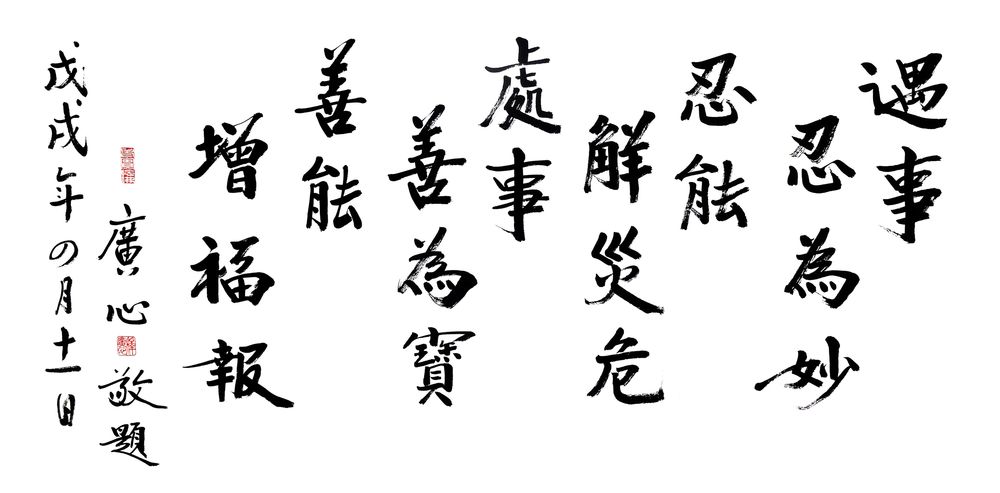 遇事
忍為妙
忍能
解災危
處事
善為寶
善能
增福報
廣心敬題
戊戌年四月十一日